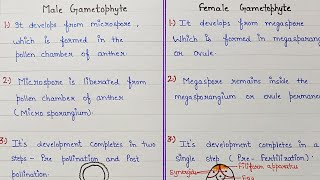 Male Gametophyte
1.) It develops from microspore,
which is formed in the
pollen chamber of anther.
2.) Microspore is liberated from
pollen chamber of anther
(Microsporangium).
3.) It's development completes in two
steps - Pre pollination and Post
pollination.
Female Gametophyte
1.) It develops from megaspore
Which is formed in megasporang
or ovule.
2.) Megaspore remains inside the
megasporangium or ovule permane
3.) It's development completes in a
single step (Pre-Fertilization).
Synergids
Filiform apparatus
Egg